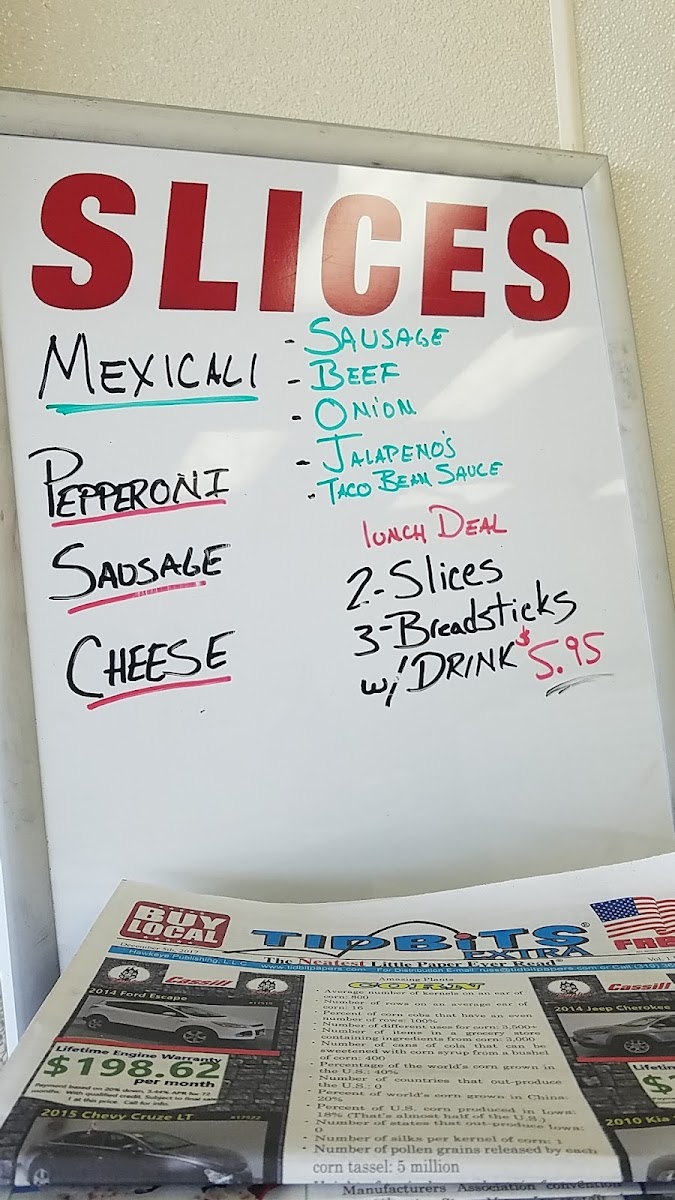 SLICES
MEXICALI
- SAUSAGE
- BEEF
- ONION
- JALAPENO'S
- TACO BEAN SAUCE
PEPPERONI
SAUSAGE
CHEESE
LUNCH DEAL
2-Slices
3-Breadsticks
w/ DRINK $5.95
BUY LOCAL
December 5th, 2017
Hawkeye Publishing, L.L.C.
TIDBITS®
EXTRA
The Neatest Little Paper Ever Read®
www.tidbitspapers.com For Distribution E-mail:
FRE
Vol. 1
Cassill
2014 Ford Escape
Lifetime Engine Warranty
$198.62
per month
2015 Chevy Cruze LT
Amazing Plants
CORN
· Average number of kernels on an ear of
corn: 800
· Number of rows on average ear of
corn: 16
· Percent of corn cobs that have an even
number of rows: 100%
· Number of different uses for corn: 3,500+
· Number of items in a grocery store
containing ingredients from corn: 3,000
· Number of cans of cola that can be
sweetened with corn syrup from a bushel
of corn: 400
· Percentage of the world's corn grown in
the U.S.: 40%
· Number of countries that out-produce
the U.S.: 0
· Percent of world's corn grown in China:
20%
· Percent of U.S. corn produced in Iowa:
18% (That's almost half of the U.S.)
· Number of states that out-produce Iowa:
0
· Number of silks per kernel of corn: 1
· Number of pollen grains released by each
corn tassel: 5 million
Manufacturers Association convention
Cassill
2014 Jeep Cherokee
Lifetim
$
2010 Kia